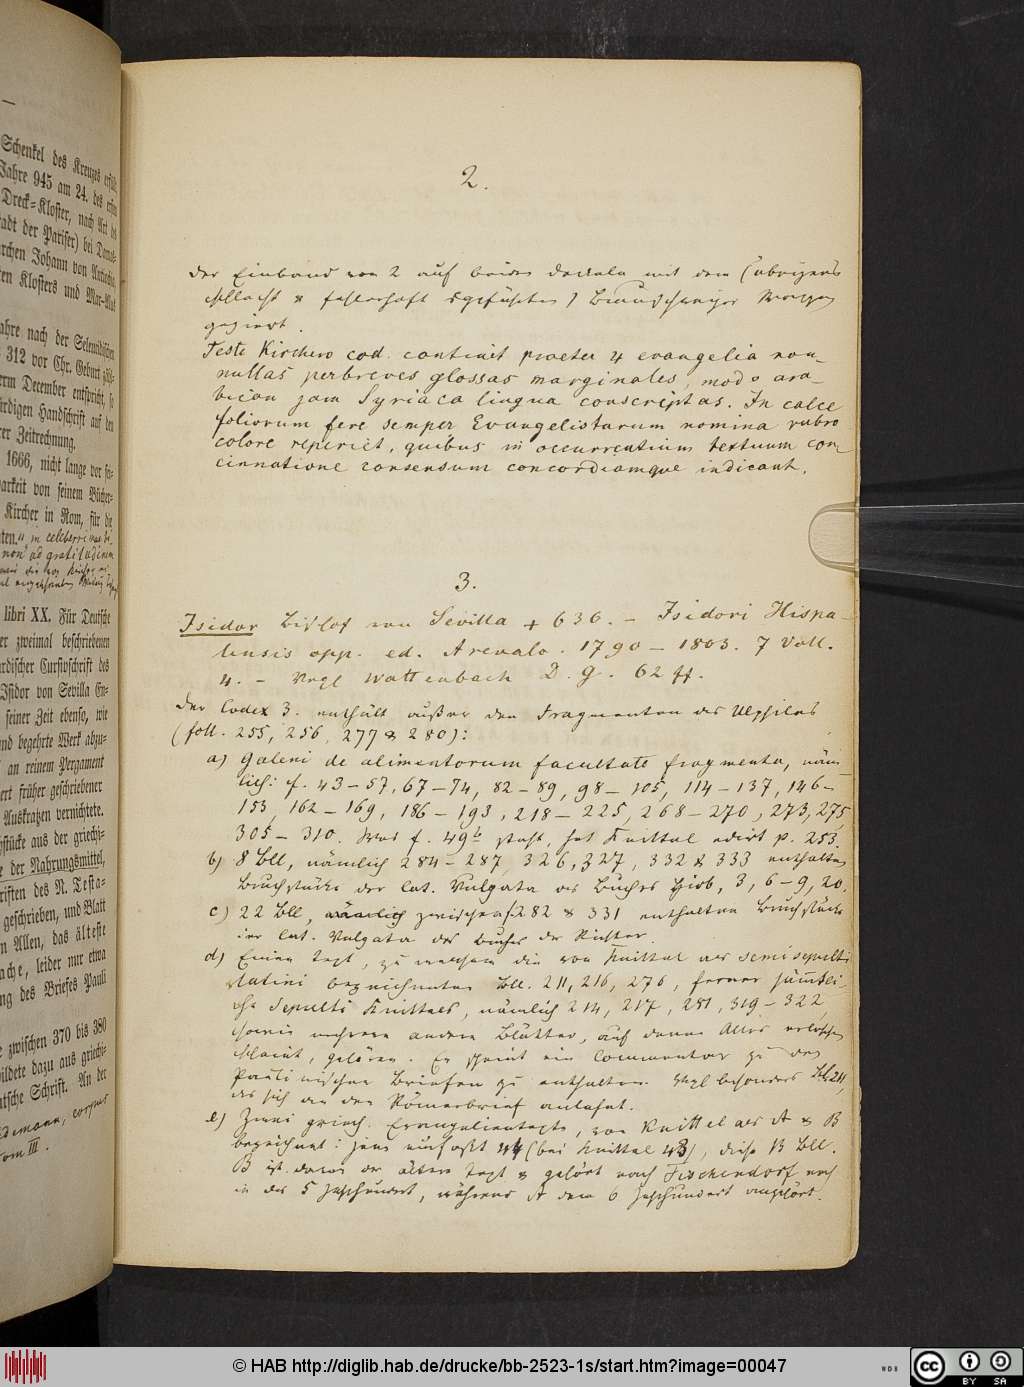 Schenkel des Kreuzes
Jahre 945 am 24. des
Dreck-Kloster, nach Art des
Stadt der Pariser) bei
Johann von
Klosters und
Jahre nach der
312 vor Chr. Geburt
December entspricht, so
Handschrift auf den
Zeitrechnung.
1666, nicht lange vor
von seinem Bücher-
Kircher in Rom, für die
non ad gratitudinem
libri XX. Für Deutsche
zweimal beschriebenen
Cursivschrift des
Isidor von Sevilla
seiner Zeit ebenso, wie
und begehrte Werk abzu-
an reinem Pergament
früher geschriebener
Auskratzen vernichtete.
aus der griechi-
der Nahrungsmittel,
des N. Testa-
geschrieben, und Blatt
Allen, das älteste
leider nur etwa
des Briefes Pauli
zwischen 370 bis 380
bildete dazu aus griechi-
Schrift. An der
corpus
tom III.
2.
Der Einband von 2 auf beiden Deckeln mit dem (übrigens
schlecht & fehlerhaft ausgeführten) Braunschweiger Wappen
geziert.
Teste Kirchero cod. continet praeter 4 evangelia non-
nullas perbreves glossas marginales, modo ara-
bicam jam Syriaca lingua conscriptas. In calce
foliorum fere semper Evangelistarum nomina rubro
colore reperiet, quibus in occurrentium textuum con-
cinnatione consensum concordiamque indicant.
3.
Isidor Bischof von Sevilla + 636. – Isidori Hispa-
lensis opp. ed. Arevalo. 1790 – 1803. 7 Voll.
4. – Vergl Wattenbach D. G. 62 ff.
Der Codex 3. enthält außer den Fragmenten des Ulphilas
(foll. 255, 256, 277 & 280):
a) Galeni de alimentorum facultate fragmenta, näm-
lich: f. 43–57, 67–74, 82–89, 98–105, 114–137, 146–
153, 162–169, 186–193, 218–225, 268–270, 273, 275,
305–310. Was f. 49b steht, hat Knittel edirt p. 253.
b) 8 Bll, nämlich 284–287, 326, 327, 332 & 333 enthalten
Bruchstücke der lat. Vulgata des Buches Hiob, 3, 6–9, 20.
c) 22 Bll, nämlich zwischen f. 282 & 331 enthalten Bruchstücke
der lat. Vulgata des Buches der Richter.
d) Einen Text, zu welchem die von Knittel als semisepulti
latini bezeichneten Bll. 211, 216, 276, ferner sämmtli-
che Sepulti Knittels, nämlich 214, 217, 281, 319–322
sowie mehrere andere Blätter, auf denen Alles erloschen
scheint, gehören. Er scheint ein Commentar zu den
Paulinischen Briefen zu enthalten. Vergl besonders Bl. 211,
das sich an den Römerbrief anlehnt.
e) Zwei griech. Evangelientexte, von Knittel als A & B
bezeichnet: jener umfaßt 44 (bei Knittel 43), dieser 13 Bll.
B ist davon der ältere Text & gehört nach Tischendorf noch
in das 5 Jahrhundert, während A dem 6 Jahrhundert angehört.
© HAB http://diglib.hab.de/drucke/bb-2523-1s/start.htm?image=00047
WDB
cc
BY SA